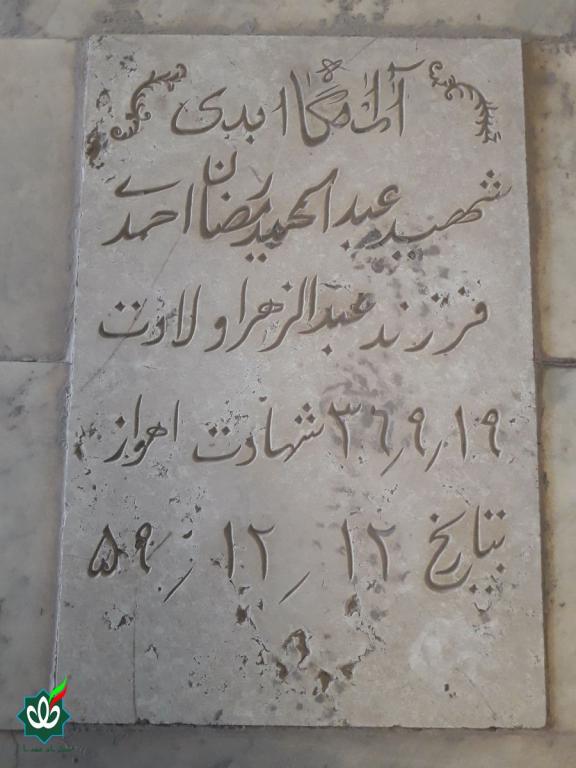 آرامگاه ابدی
شهید عبدالحمید رمضان احمدی
فرزند عبدالزهرا ولادت
۱۹٫۹٫۳۶ شهادت اهواز
بتاریخ ۱۲ ٫ ۱۲ ٫ ۵۹